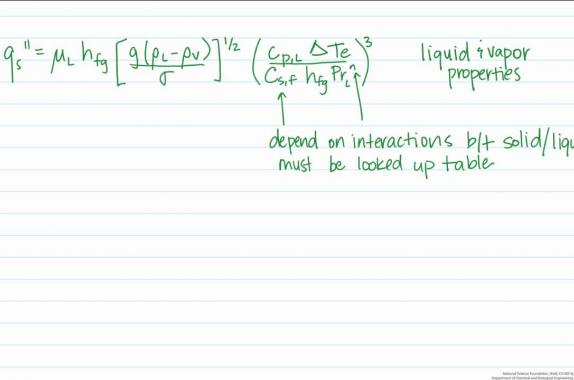 qs" = μL hfg [g(ρL-ρv)/σ]^1/2 (Cp,L ΔTe / Cs,f hfg PrL^n)^3
liquid & vapor
properties
depend on interactions b/t solid/liqu
must be looked up table
National Science Foundation,
Department of Chemical and Biological Engineering